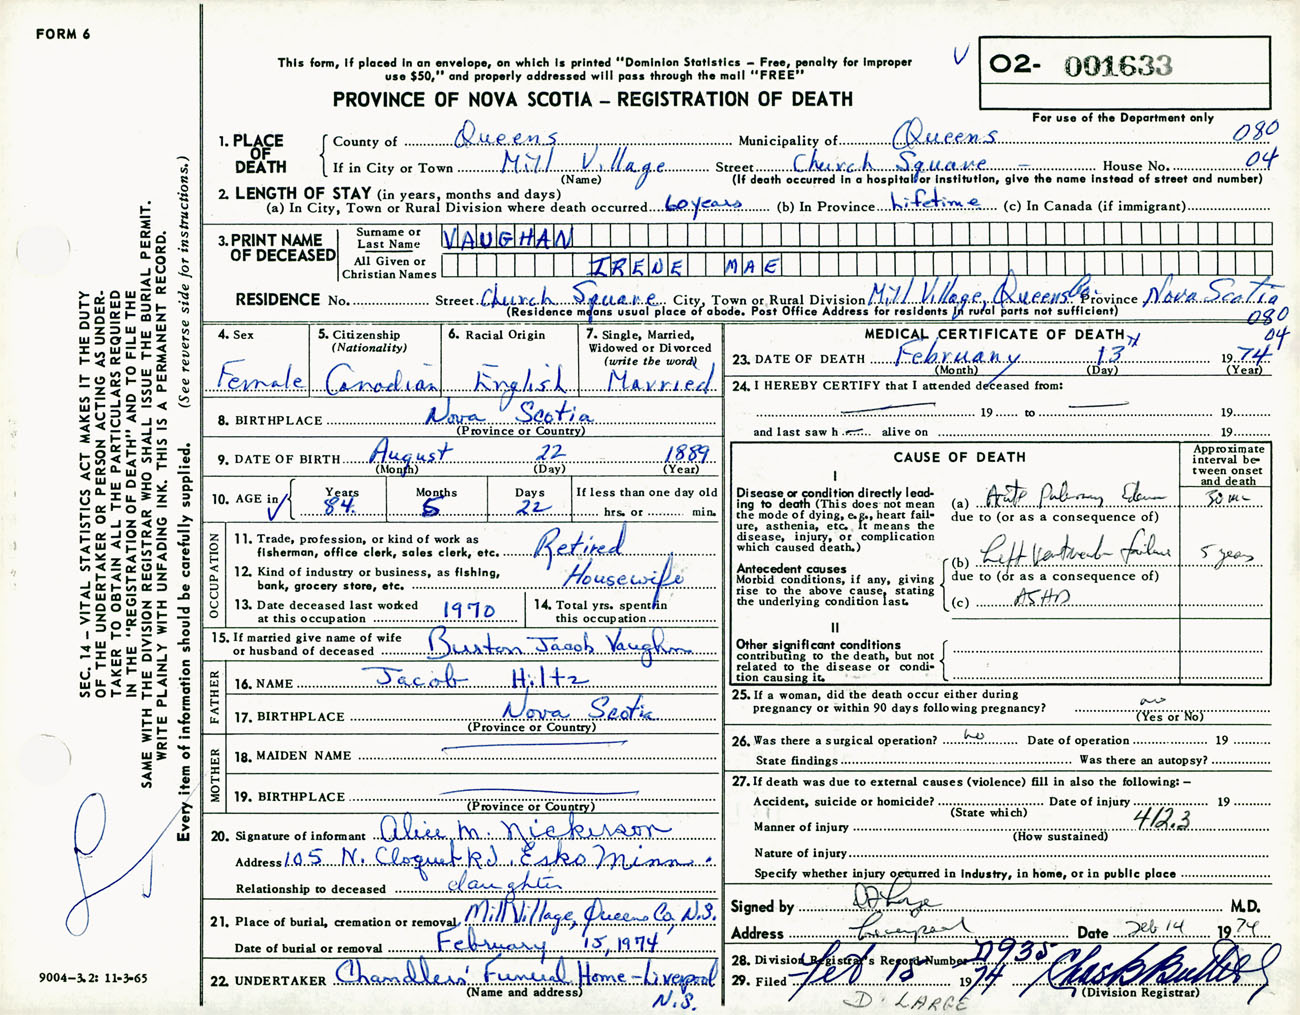 FORM 6
This form, if placed in an envelope, on which is printed "Dominion Statistics – Free, penalty for improper
use $50," and properly addressed will pass through the mail "FREE"
PROVINCE OF NOVA SCOTIA – REGISTRATION OF DEATH
02- 001633
For use of the Department only
1. PLACE OF DEATH
County of Queens Municipality of Queens 080
If in City or Town Mill Village Street Church Square House No. 04
(Name) (If death occurred in a hospital or institution, give the name instead of street and number)
2. LENGTH OF STAY (in years, months and days)
(a) In City, Town or Rural Division where death occurred 60 years (b) In Province Lifetime (c) In Canada (if immigrant)
3. PRINT NAME OF DECEASED
Surname or Last Name VAUGHAN
All Given or Christian Names IRENE MAE
RESIDENCE No. Street Church Square City, Town or Rural Division Mill Village, Queens Co. Province Nova Scotia
(Residence means usual place of abode. Post Office Address for residents in rural parts not sufficient) 080
04
4. Sex Female
5. Citizenship (Nationality) Canadian
6. Racial Origin English
7. Single, Married, Widowed or Divorced (write the word) Married
8. BIRTHPLACE Nova Scotia
(Province or Country)
9. DATE OF BIRTH August 22 1889
(Month) (Day) (Year)
10. AGE in Years 84 Months 5 Days 22 If less than one day old
hrs. or min.
OCCUPATION
11. Trade, profession, or kind of work as
fisherman, office clerk, sales clerk, etc. Retired
12. Kind of industry or business, as fishing,
bank, grocery store, etc. Housewife
13. Date deceased last worked
at this occupation 1970
14. Total yrs. spent in
this occupation
15. If married give name of wife
or husband of deceased Burton Jacob Vaughan
FATHER
16. NAME Jacob Hiltz
17. BIRTHPLACE Nova Scotia
(Province or Country)
MOTHER
18. MAIDEN NAME
19. BIRTHPLACE
(Province or Country)
20. Signature of informant Alice M. Nickerson
Address 105 N. Cloquet Rd. Esko Minn.
Relationship to deceased daughter
21. Place of burial, cremation or removal Mill Village, Queens Co, N.S.
Date of burial or removal February 15, 1974
22. UNDERTAKER Chandlers' Funeral Home – Liverpool
(Name and address) N.S.
MEDICAL CERTIFICATE OF DEATH
23. DATE OF DEATH February 13 1974
(Month) (Day) (Year)
24. I HEREBY CERTIFY that I attended deceased from:
19 to 19
and last saw h alive on 19
CAUSE OF DEATH
Approximate interval between onset and death
I
Disease or condition directly lead-
ing to death (This does not mean
the mode of dying, e.g., heart fail-
ure, asthenia, etc. It means the
disease, injury, or complication
which caused death.)
(a) Acute Pulmonary Edema 30 min
due to (or as a consequence of)
Antecedent causes
Morbid conditions, if any, giving
rise to the above cause, stating
the underlying condition last.
(b) Left Ventricular failure 5 years
due to (or as a consequence of)
(c) ASHD
II
Other significant conditions
contributing to the death, but not
related to the disease or condi-
tion causing it.
25. If a woman, did the death occur either during
pregnancy or within 90 days following pregnancy? no
(Yes or No)
26. Was there a surgical operation? no Date of operation 19
State findings Was there an autopsy?
27. If death was due to external causes (violence) fill in also the following: –
Accident, suicide or homicide? Date of injury 19
(State which)
412.3
Manner of injury
(How sustained)
Nature of injury
Specify whether injury occurred in Industry, in home, or in public place
Signed by D Large M.D.
Address Liverpool Date Feb 14 1974
28. Division Registrar's Record Number D935
29. Filed Feb 15 1974
(Division Registrar)
D. LARGE
SEC. 14 – VITAL STATISTICS ACT MAKES IT THE DUTY
OF THE UNDERTAKER OR PERSON ACTING AS UNDER-
TAKER TO OBTAIN ALL THE PARTICULARS REQUIRED
IN THE "REGISTRATION OF DEATH" AND TO FILE THE
SAME WITH THE DIVISION REGISTRAR WHO SHALL ISSUE THE BURIAL PERMIT.
WRITE PLAINLY WITH UNFADING INK. THIS IS A PERMANENT RECORD.
Every item of information should be carefully supplied. (See reverse side for instructions.)
9004-3.2: 11-3-65